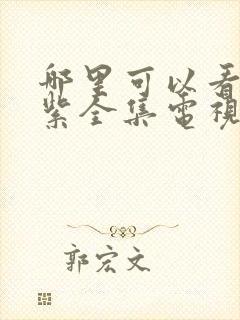 哪里可以看
紫全集電視
郭宏文